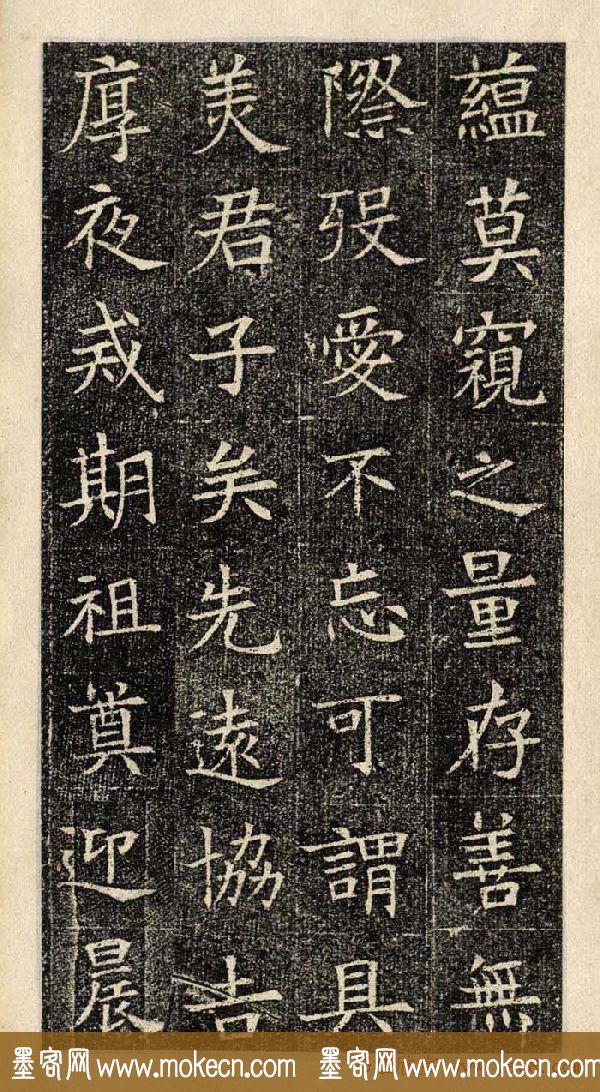 蘊莫窺之量存善無
際殁愛不忘可謂具
美君子矣先遠協吉
厚夜戒期祖奠迎晨
墨客网 www.mokecn.com 墨客网 www.mokecn.com